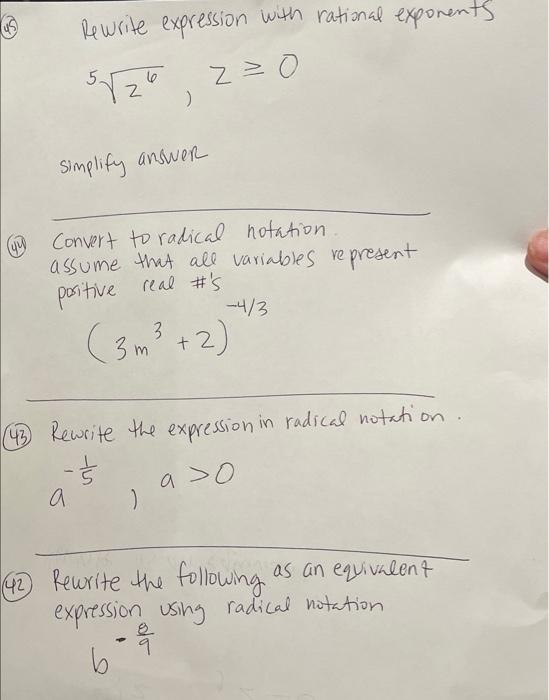 45 Rewrite expression with rational exponents
⁵√z⁶ , z ≥ 0
simplify answer
44 Convert to radical notation.
assume that all variables represent
positive real #'s
(3m³ + 2)^-4/3
43 Rewrite the expression in radical notation.
a^-1/5 , a > 0
42 Rewrite the following as an equivalent
expression using radical notation
b^-8/9